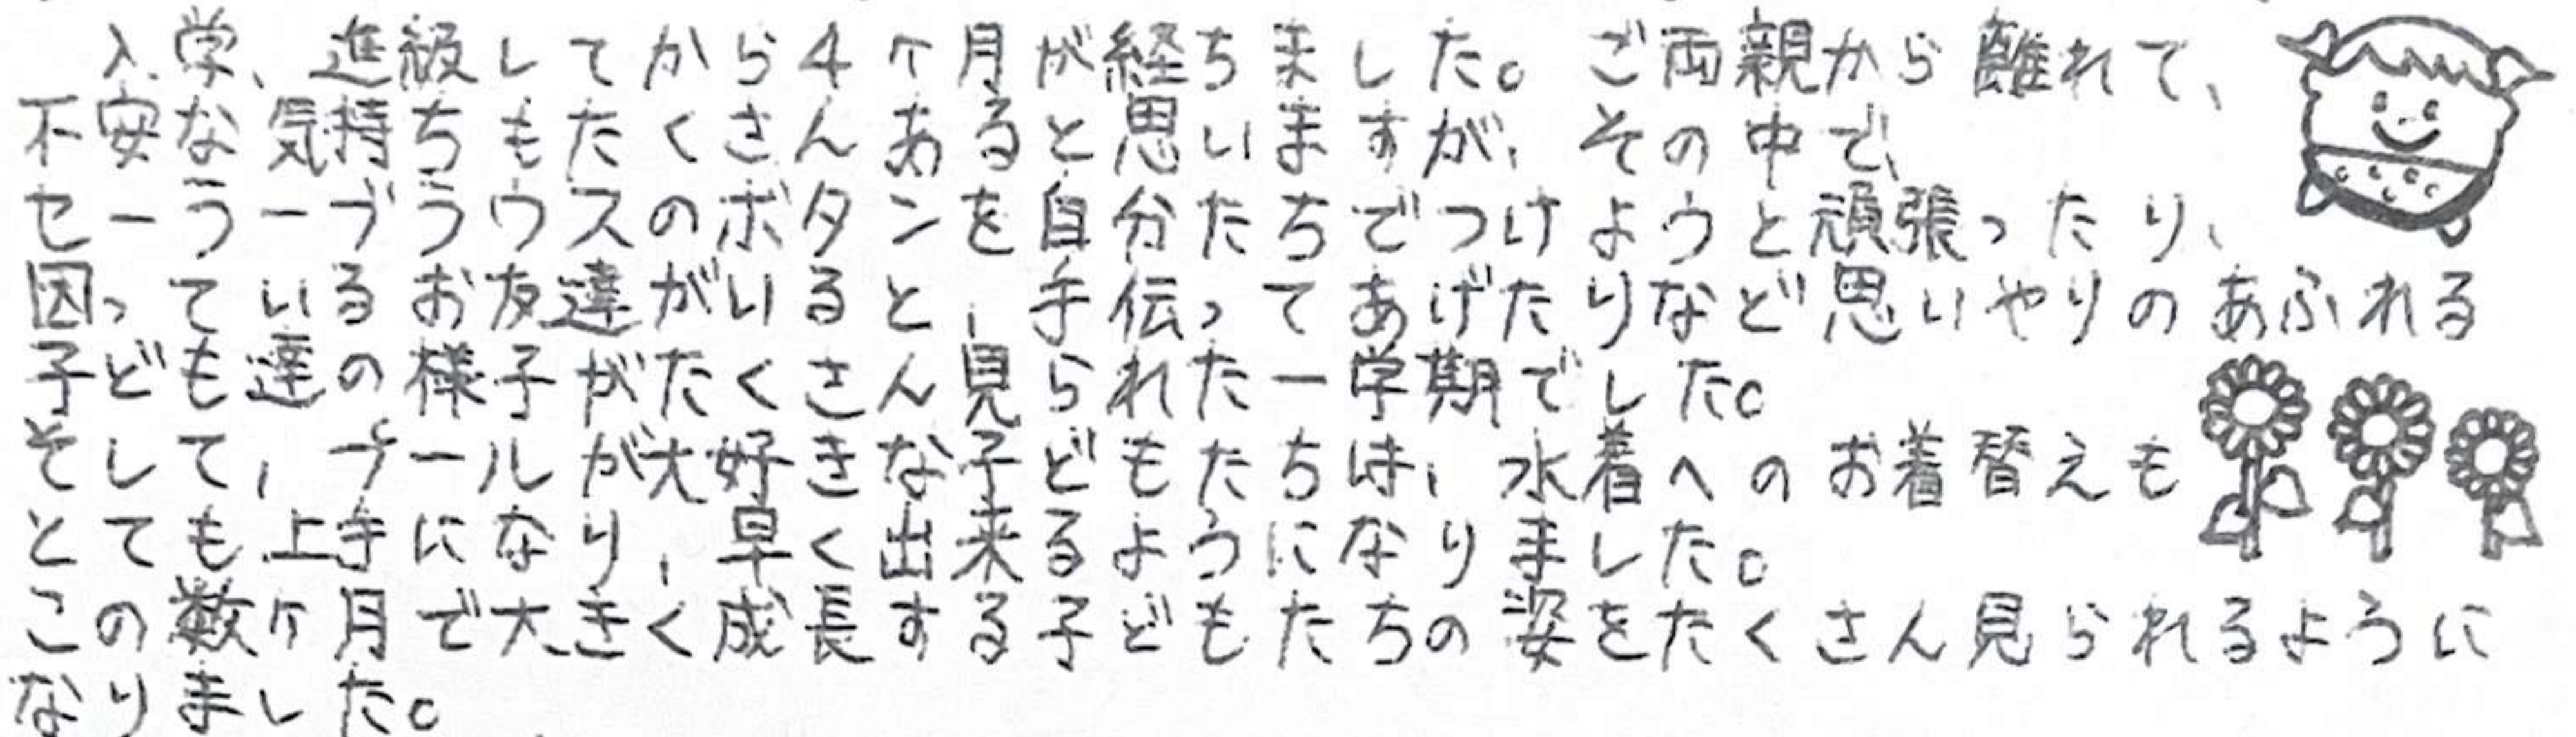 入学、進級してから4ヶ月が経ちました。ご両親から離れて、
不安な気持ちもたくさんあると思いますが、その中で、
セーラーブラウスのボタンを自分たちでつけようと頑張ったり、
困っているお友達がいると、手伝ってあげたりなど思いやりのあふれる
子ども達の様子がたくさん見られた一学期でした。
そして、プールが大好きな子どもたちは、水着へのお着替えも
とても上手になり、早く出来るようになりました。
この数ヶ月で大きく成長する子どもたちの姿をたくさん見られるように
なりました。